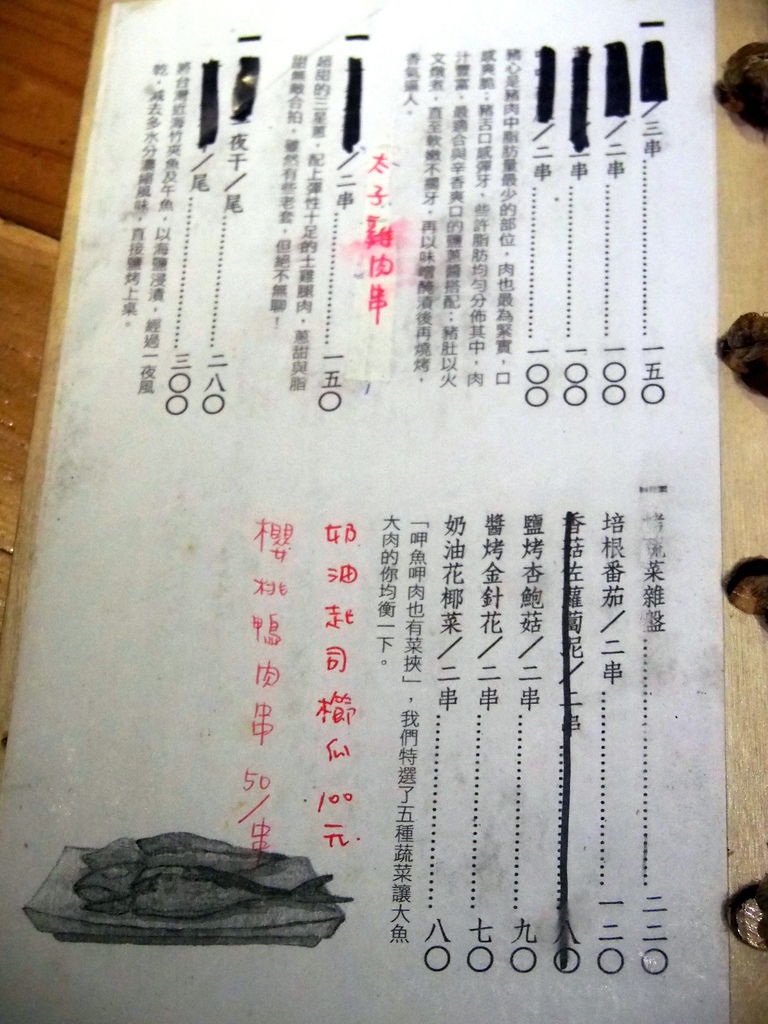 ／三串………一五〇
／二串………一〇〇
串………一〇〇
／二串………一〇〇
豬心是豬肉中脂肪量最少的部位，肉也最為緊實，口
感爽脆；豬舌口感彈牙，些許脂肪均勻分佈其中，肉
汁豐富，最適合與辛香爽口的鹽蔥醬搭配；豬肚以火
文燉煮，直至軟嫩不彈牙，再以味噌醃漬後再燒烤，
香氣逼人。
太子雞肉串
／二串………一五〇
超甜的三星蔥，配上彈性十足的土雞腿肉，蔥甜與脂
甜無敵合拍，雖然有些老套，但絕不無聊！
一夜干／尾………二八〇
／尾………三〇〇
將台灣近海竹筴魚及午魚，以海鹽浸漬，經過一夜風
乾，減去多水分濃縮風味，直接鹽烤上桌。
烤蔬菜雜盤………二二〇
培根番茄／二串………一二〇
香菇佐蘿蔔泥／二串………八〇
鹽烤杏鮑菇／二串………九〇
醬烤金針花／二串………七〇
奶油花椰菜／二串………八〇
「呷魚呷肉也有菜挾」，我們特選了五種蔬菜讓大魚
大肉的你均衡一下。
奶油起司櫛瓜 100元
櫻桃鴨肉串 50/串